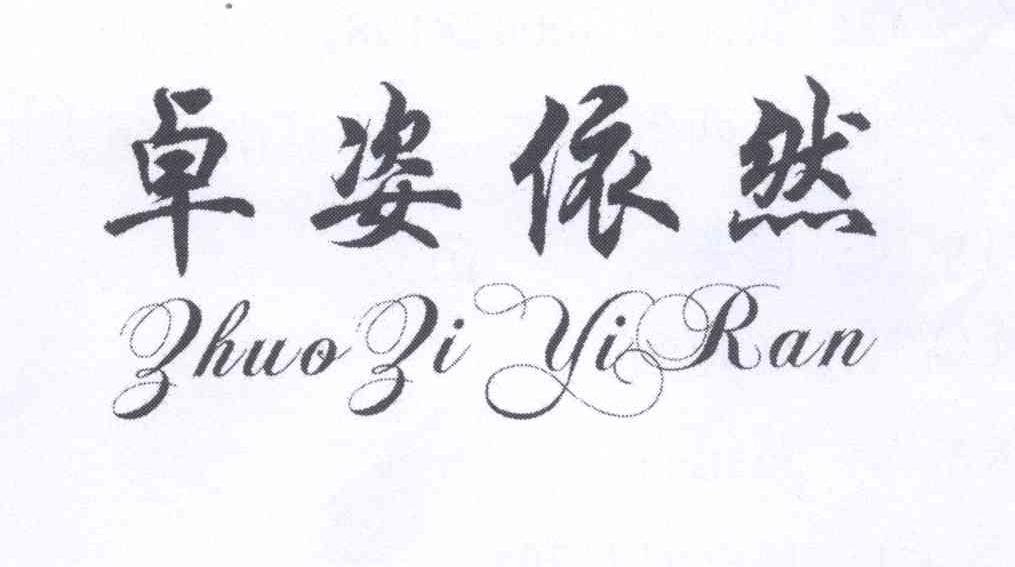 卓姿依然
Zhuo Zi Yi Ran